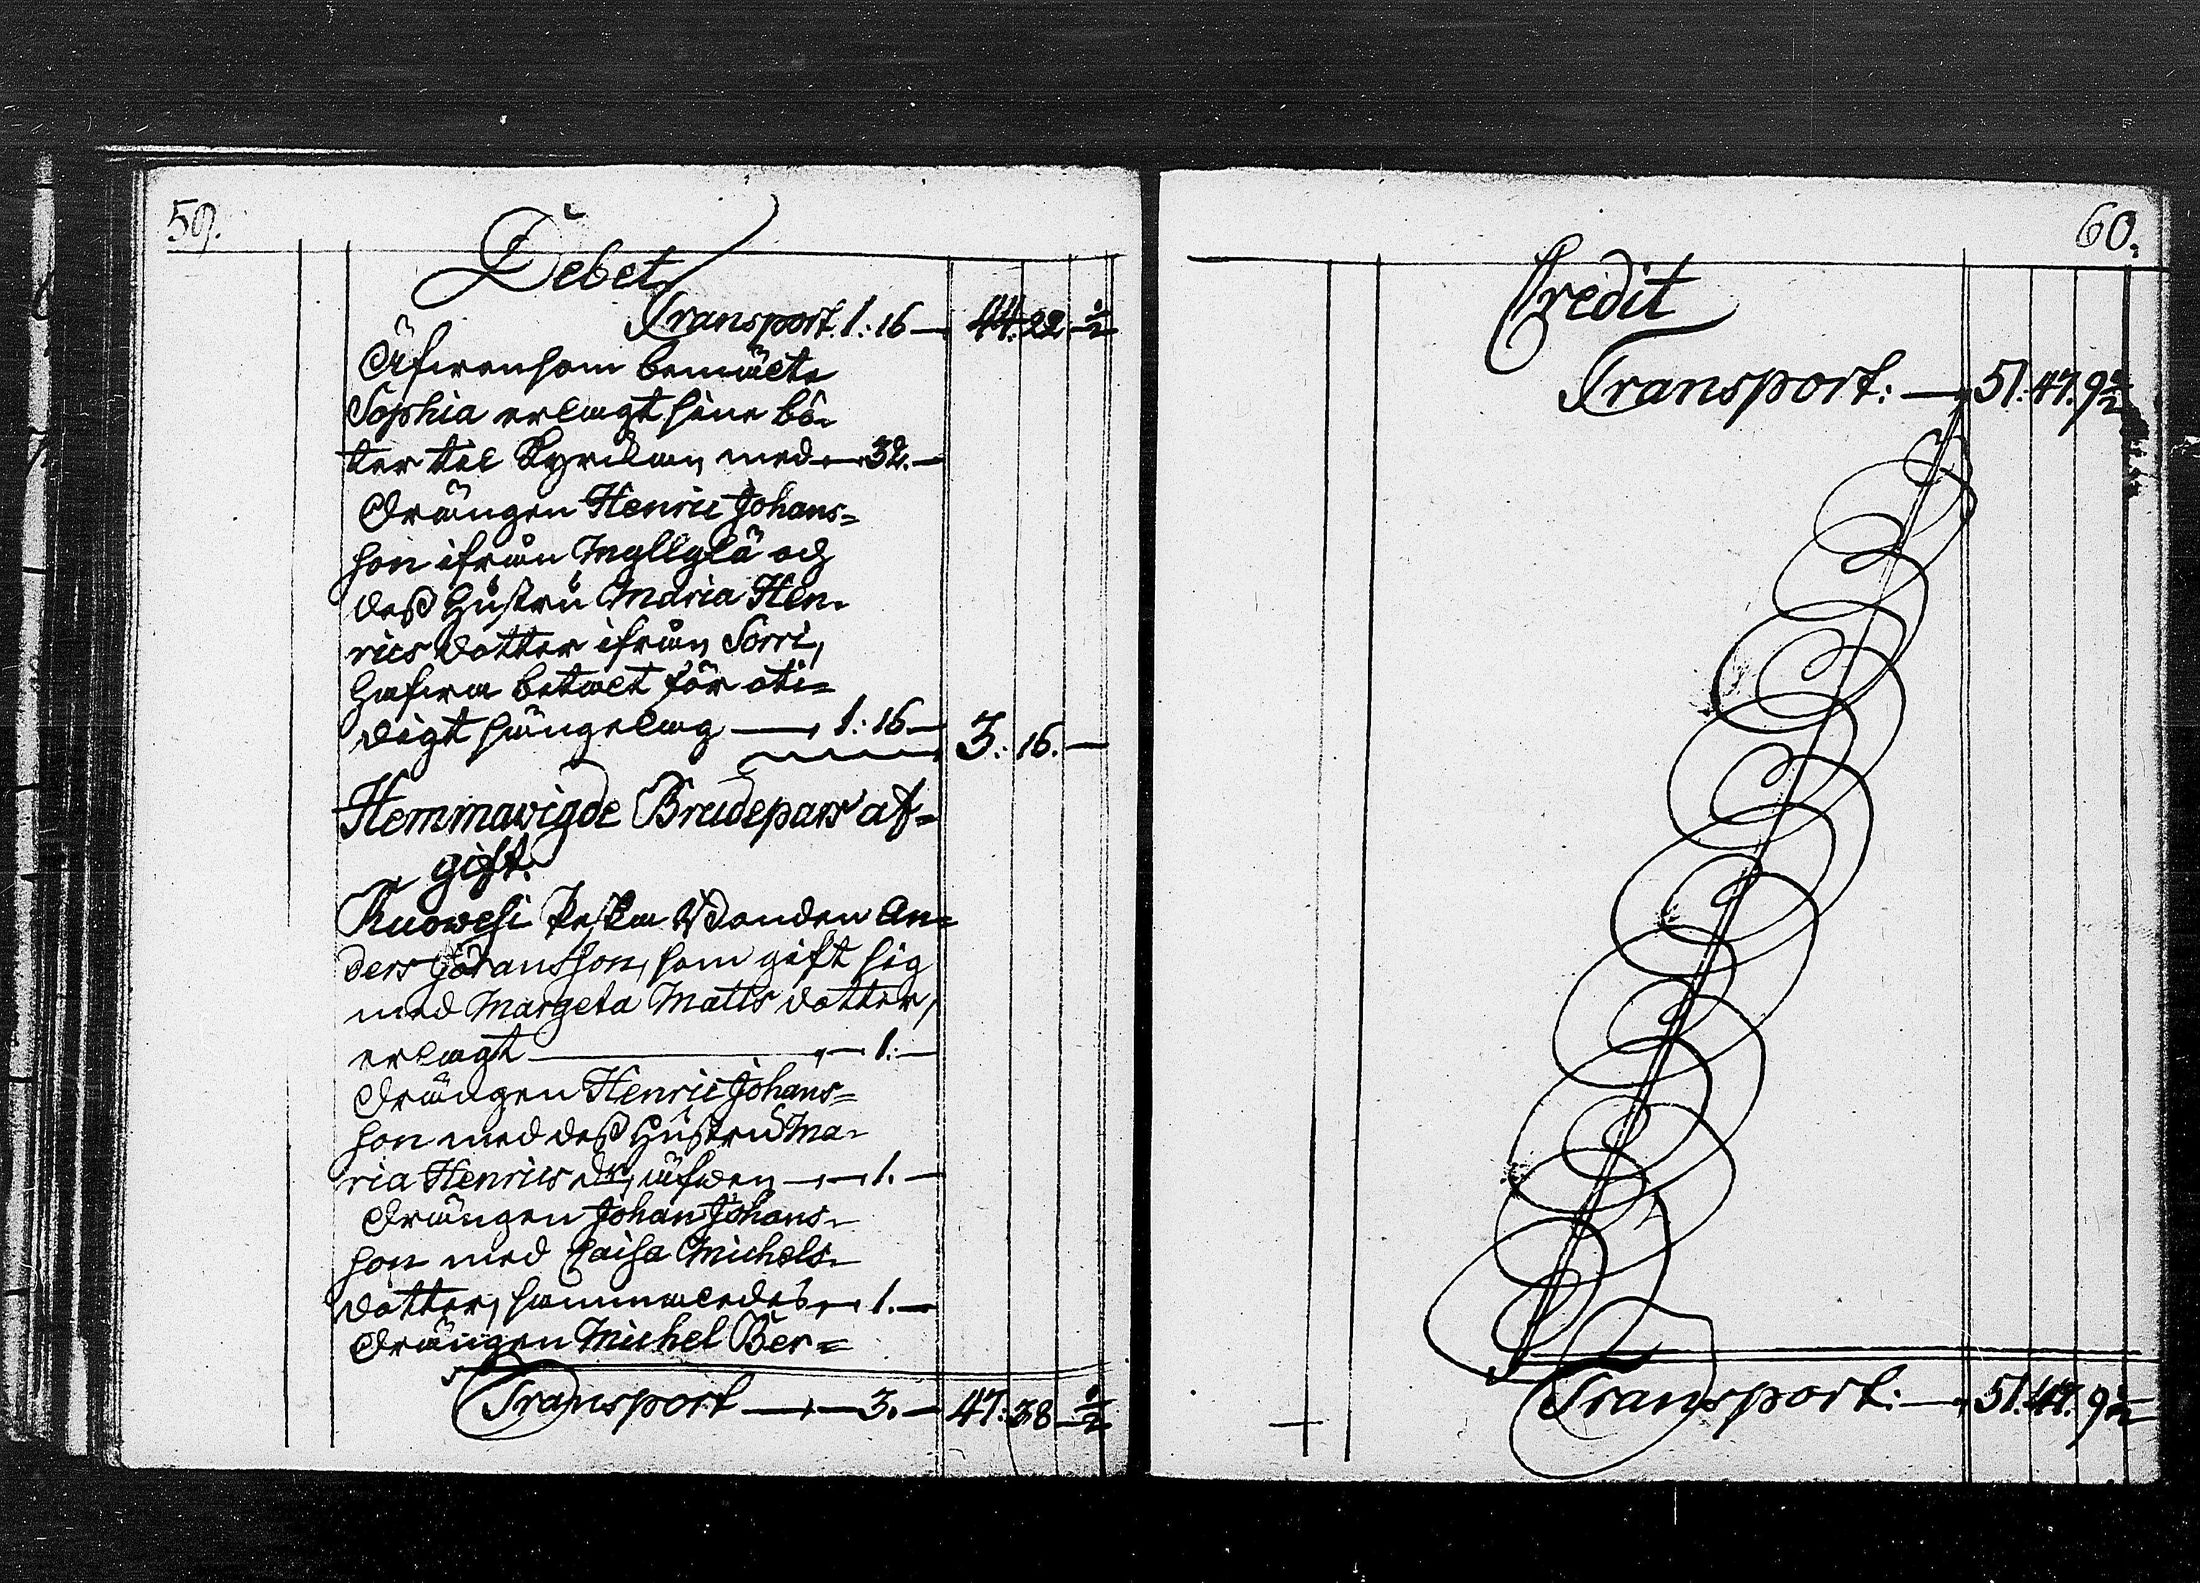 59.
Debet
Transport. 1: 16 — 44: 22 ½
Äfwensom bemälte
Sophia erlagt sine bö-
ter til Kyrckan med — 32. —
Drängen Henric Johans=
son ifrån Myllylä och
dess Hustru Maria Hen-
rics dotter ifrån Sorri,
hafwa betalt för oti=
digt sängelag — 1: 16 — 3: 16. —
Hemmawigde Brudepars af=
gift.
Ruowesi Anders
ders Göransson, som gift sig
med Margeta Matts dotter,
erlagt — 1: —
Drängen Henric Johans=
son med dess Hustru Ma-
ria Henrics dr, äfwen — 1. —
Drängen Johan Johans-
son med Caisa Michels-
dotter, sammaledes — 1. —
Drängen Michel Ber=
Transport — 3. — 47: 38 ½
60.
Credit
Transport: — 51: 47. 9½
Transport: — 51: 47. 9½